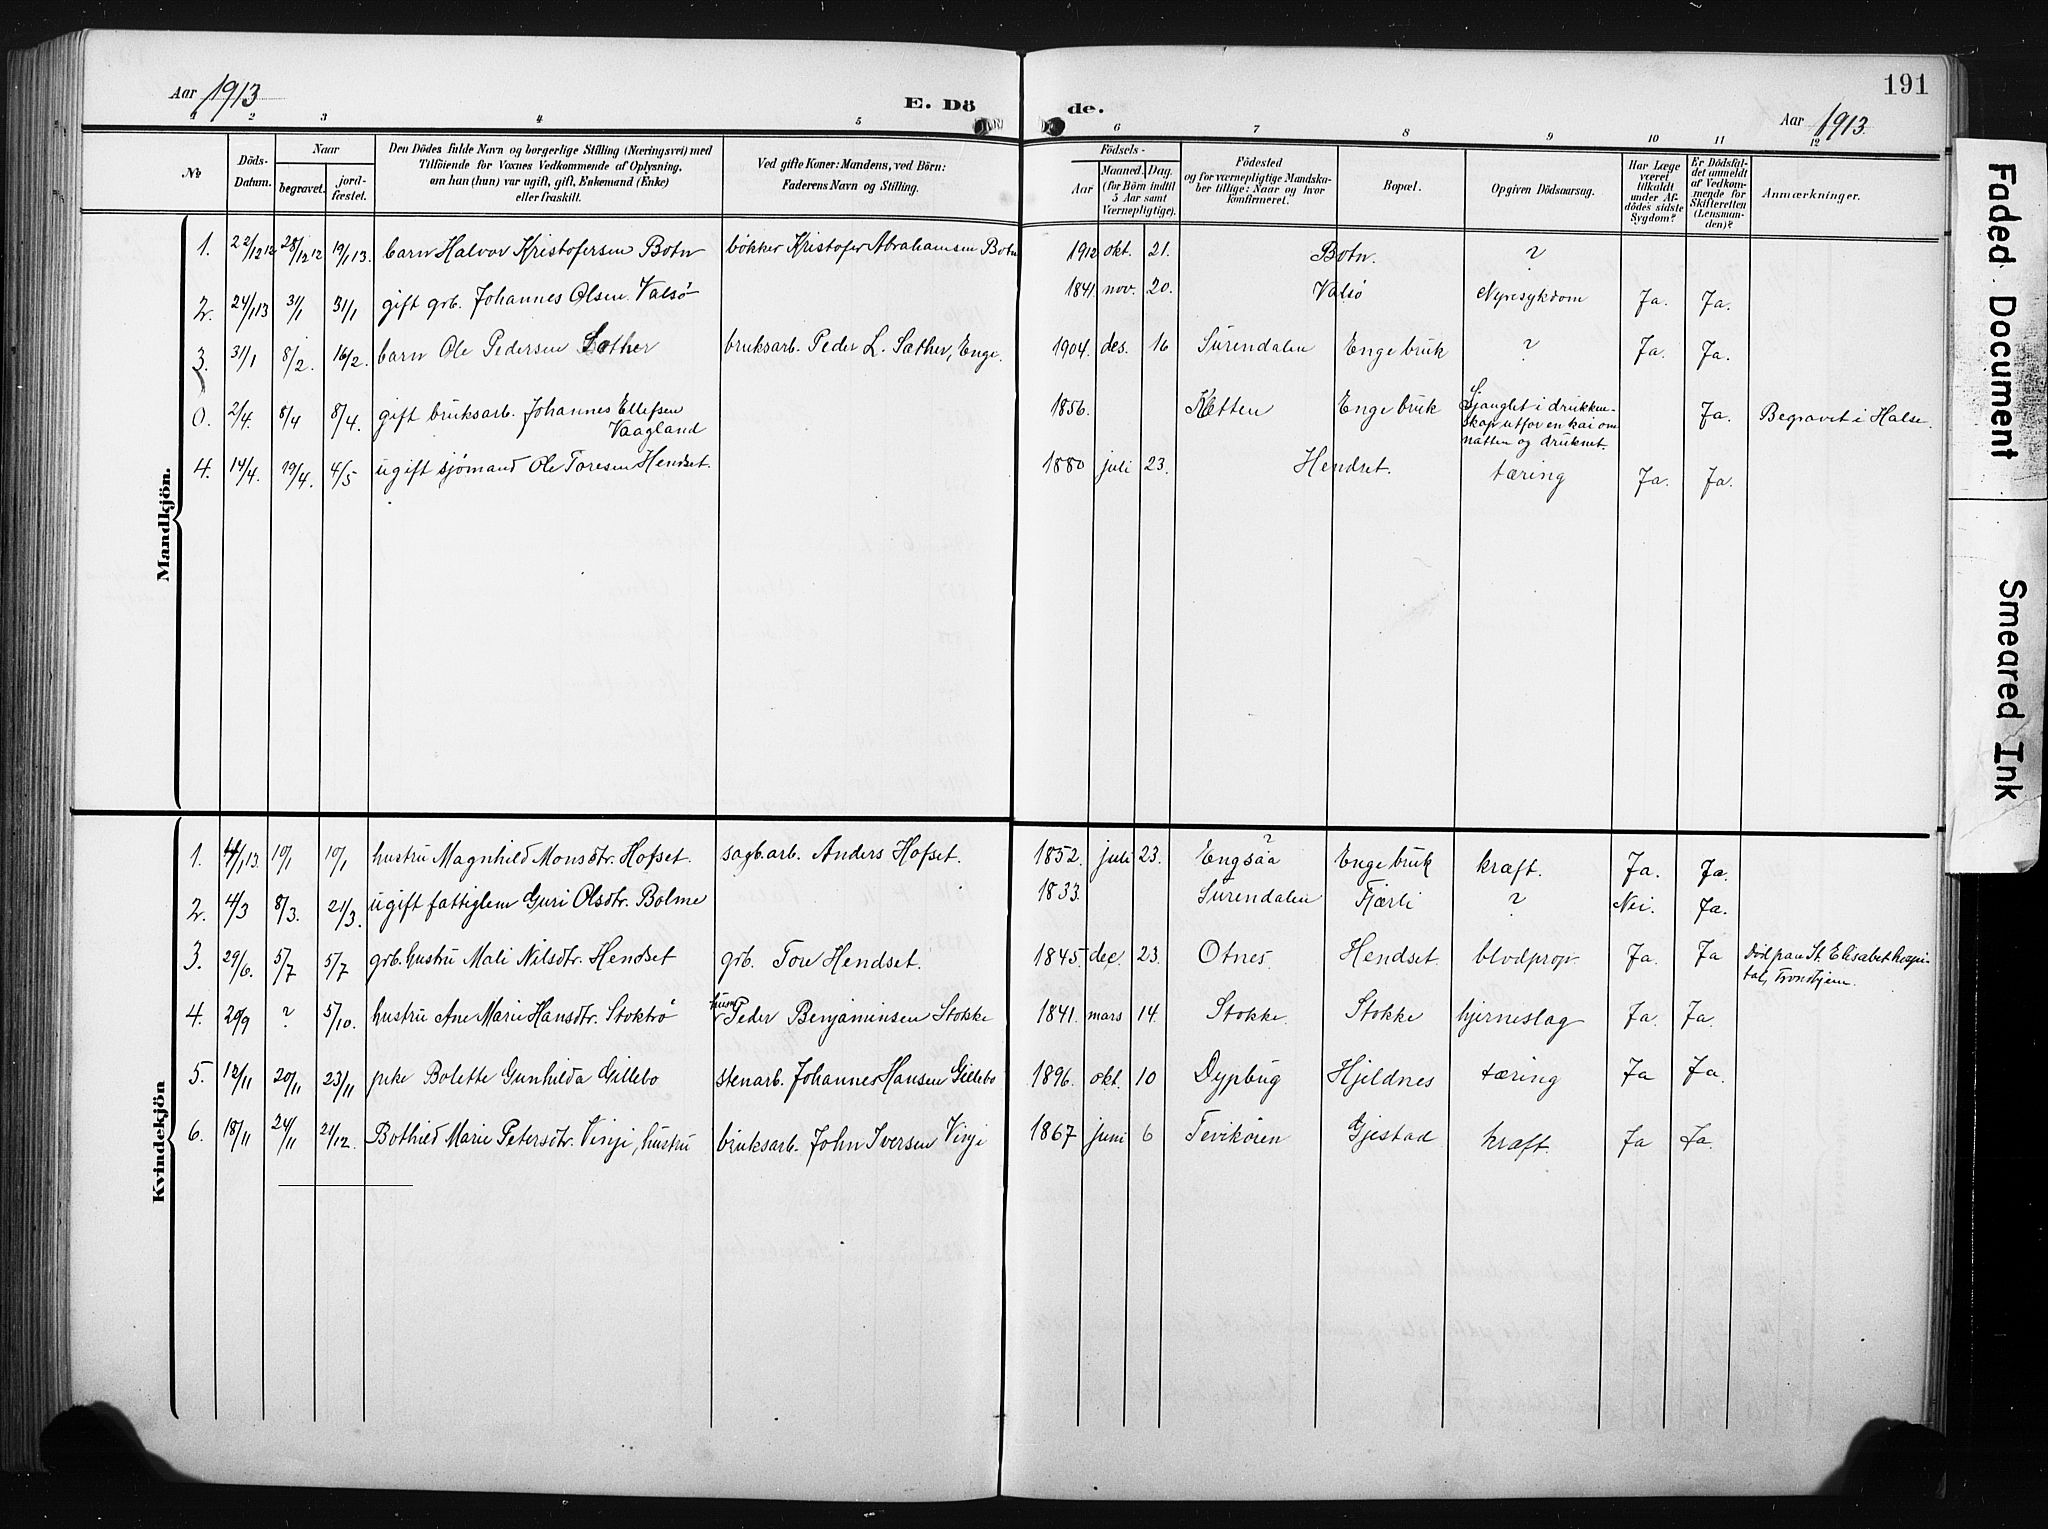 191
Aar 1913
E. Dö
de.
Aar 1913
1 2 3 4 5 6 7 8 9 10 11 12
№
Döds-Datum.
Naar
begravet.
jord-fæstet.
Den Dödes fulde Navn og borgerlige Stilling (Næringsvei) med
Tilföiende for Voxnes Vedkommende af Oplysning,
om han (hun) var ugift, gift, Enkemand (Enke)
eller fraskilt.
Ved gifte Koner: Mandens, ved Börn:
Faderens Navn og Stilling.
Födsels-
Aar
Maaned. Dag.
(for Börn indtil
5 Aar samt
Værnepligtige).
Födested
og for værnepligtige Mandska-
ber tillige: Naar og hvor
konfirmeret.
Bopæl.
Opgiven Dödsaarsag.
Har Læge
været
tilkaldt
under Af-
dödes sidste
Sygdom?
Er Dödsfal-
det anmeldt
af Vedkom-
mende for
Skifteretten
(Lensman-
den)?
Anmærkninger.
Mandkjön.
1. 22/12 12 28/12 12 19/1 13. barn Halvor Kristofersen Botn bøkker Kristofer Abrahamsen Botn 1912 okt. 21. Botn. ?
2. 24/1 13 31/1 31/1 gift grb. Johannes Olsen Valsø 1841. nov. 20. Valsø Nyresykdom Ja. Ja.
3. 31/1 8/2. 16/2. barn Ole Pedersen Sæther bruksarb. Peder L. Sæther, Enge. 1904. des. 16 Surendalen Enge bruk ? Ja. Ja.
0. 2/4. 8/4 8/4. gift bruksarb. Johannes Ellefsen Vaagland 1856. Enge bruk Sjanglet i drukken-
skap utfor en kai om
natten og druknet. Ja. Begravet i Halse.
4. 14/4. 19/4. 4/5 ugift sjømand Ole Toresen Hendset. 1880 juli 23. Hendset. tæring Ja. Ja.
Kvindekjön
1. 4/1 13. 10/1 10/1 hustru Magnhild Monsdtr. Hofset. sagb.arb. Anders Hofset. 1852. juli 23. Engsaa ? Enge bruk kræft. Ja. Ja.
2. 4/3 8/3. 21/3. ugift fattiglem Guri Olsdtr. Bolme 1833. Surendalen Fjærli ? Nei. Ja.
3. 29/6. 5/7 5/7 grb. hustru Mali Nilsdtr. Hendset grb. Tore Hendset. 1845. dec. 23. Otnes. Hendset. blodprop. Ja. Ja Død paa St. Elisabet hospi-
tal, Trondhjem.
4. 29/9 ? 5/10. hustru Ane Marie Hansdtr. Stokkø husm. Peder Benjaminsen Stokke 1841. mars 14. Stokke. Stokke hjerneslag Ja. Ja.
5. 12/11 20/11 23/11 pike Bolette Gunhilda Gillebo stenarb. Johannes Hansen Gillebo 1896. okt. 10 Dypbug Hjeldnes tæring Ja Ja.
6. 18/11 24/11 21/12. Bothild Marie Petersdtr. Vinje, hustru bruksarb. John Iversen Vinje 1867 juni 6 Tevikøien Gjestad kræft. Ja Ja.
Faded Document
Smeared Ink